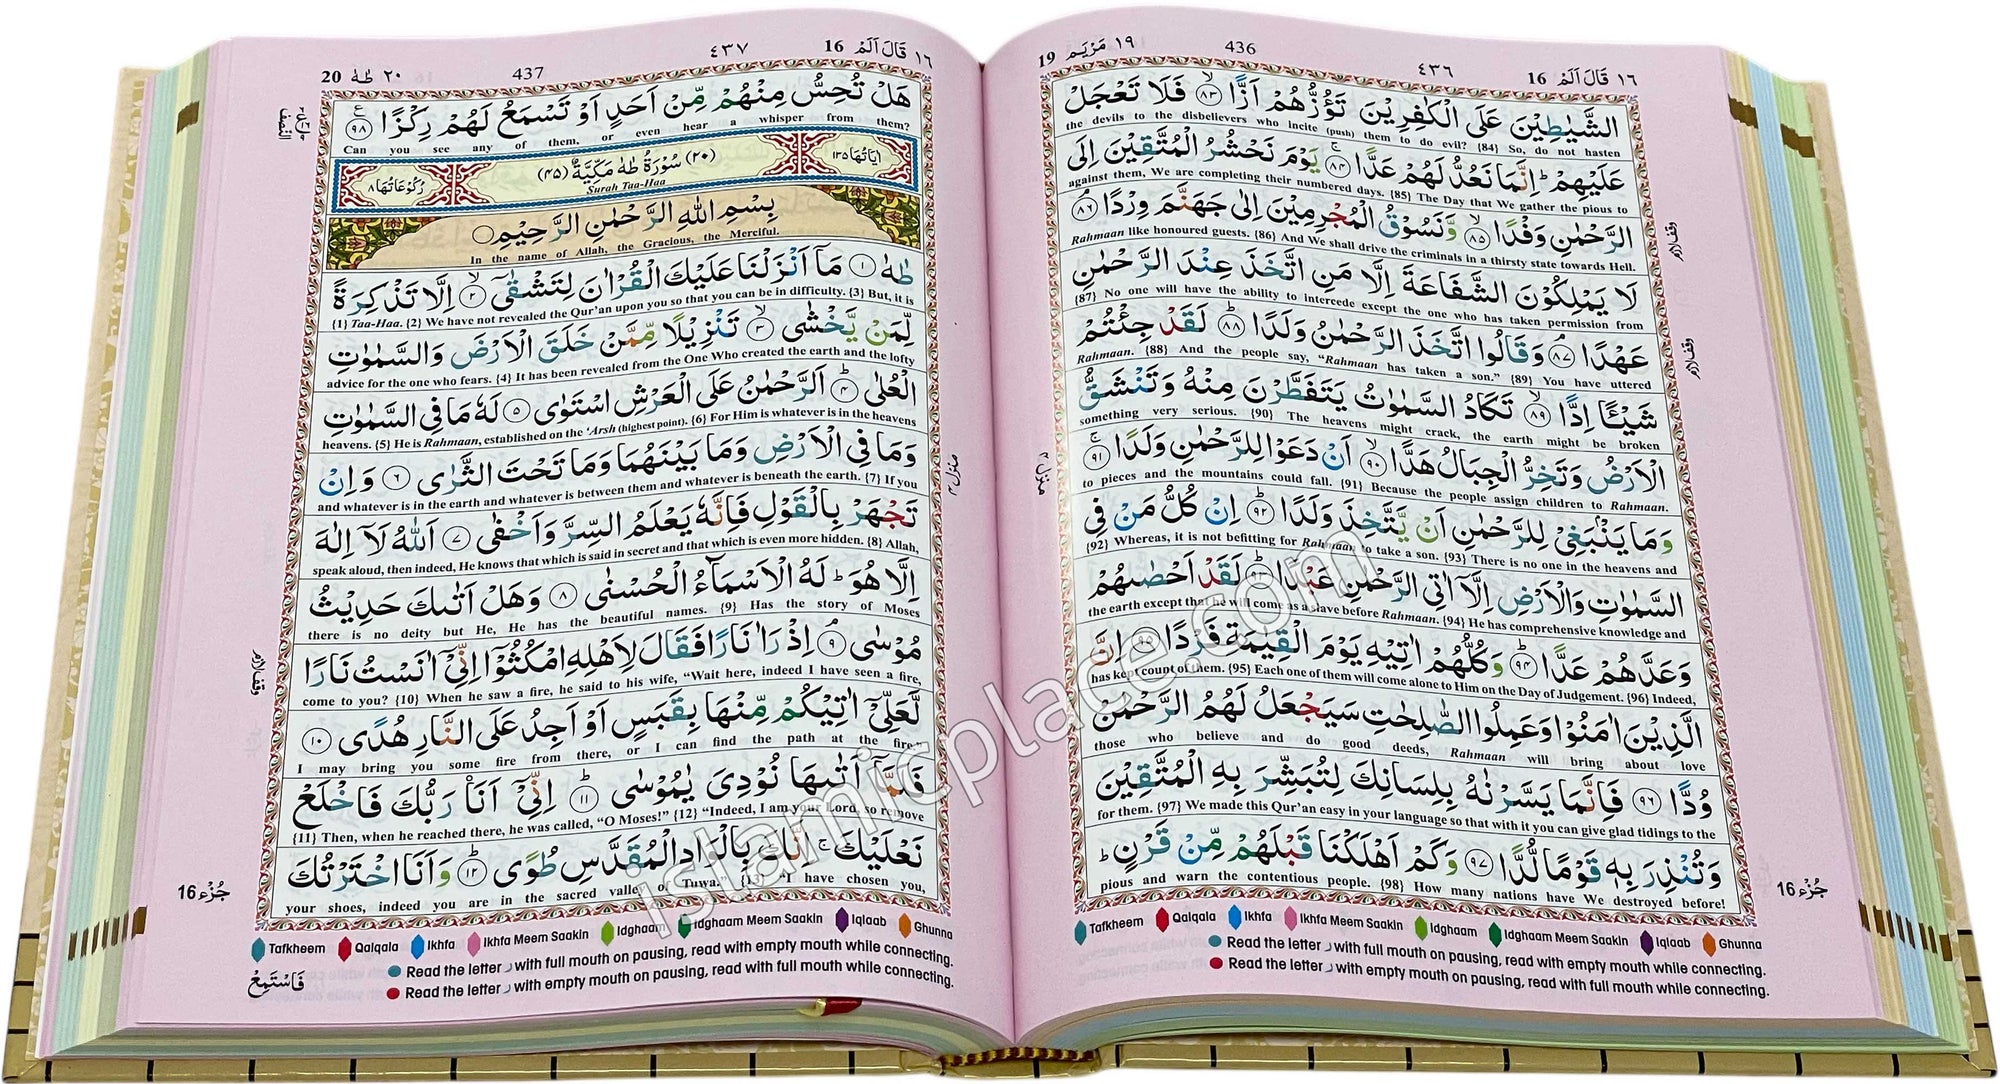 ١٦ قَالَ اَلَمۡ 16
٤٣٦
436
١٩ مَرۡیَم 19
الشَّيٰطِيۡنَ عَلَى الۡكٰفِرِيۡنَ تَؤُزُّهُمۡ اَزًّا ۙ‏ ﴿۸۳﴾ فَلَا تَعۡجَلۡ
the devils to the disbelievers who incite (push) them to do evil? {84} So, do not hasten
عَلَيۡهِمۡ‌ ؕ اِنَّمَا نَـعُدُّ لَهُمۡ عَدًّا‌ ۚ‏ ﴿۸۴﴾ يَوۡمَ نَحۡشُرُ الۡمُتَّقِيۡنَ اِلَى
against them, We are completing their numbered days. {85} The Day that We gather the pious to
الرَّحۡمٰنِ وَفۡدًا ۙ‏ ﴿۸۵﴾ وَّنَسُوۡقُ الۡمُجۡرِمِيۡنَ اِلٰى جَهَـنَّمَ وِرۡدًا‌ ۘ‏ ﴿۸۶﴾
Rahmaan like honoured guests. {86} And We shall drive the criminals in a thirsty state towards Hell.
لَا يَمۡلِكُوۡنَ الشَّفَاعَةَ اِلَّا مَنِ اتَّخَذَ عِنۡدَ الرَّحۡمٰنِ
{87} No one will have the ability to intercede except the one who has taken permission from
عَهۡدًا‌ ۘ‏ ﴿۸۷﴾ وَقَالُوا اتَّخَذَ الرَّحۡمٰنُ وَلَدًا ؕ‏ ﴿۸۸﴾ لَـقَدۡ جِئۡتُمۡ
Rahmaan. {88} And the people say, “Rahmaan has taken a son.” {89} You have uttered
شَيۡـًٔـا اِدًّا ۙ‏ ﴿۸۹﴾ تَكَادُ السَّمٰوٰتُ يَتَفَطَّرۡنَ مِنۡهُ وَتَـنۡشَقُّ
something very serious. {90} The heavens might crack, the earth might be broken
الۡاَرۡضُ وَتَخِرُّ الۡجِبَالُ هَدًّا ۙ‏ ﴿۹۰﴾ اَنۡ دَعَوۡا لِـلرَّحۡمٰنِ وَلَدًا‌ ۚ‏ ﴿۹۱﴾
to pieces and the mountains could fall. {91} Because the people assign children to Rahmaan.
وَمَا يَنۡۢبَـغِىۡ لِلرَّحۡمٰنِ اَنۡ يَّتَّخِذَ وَلَدًا ؕ‏ ﴿۹۲﴾ اِنۡ كُلُّ مَنۡ فِى
{92} Whereas, it is not befitting for Rahmaan to take a son. {93} There is no one in the heavens and
السَّمٰوٰتِ وَالۡاَرۡضِ اِلَّاۤ اٰتِى الرَّحۡمٰنِ عَبۡدًا ؕ‏ ﴿۹۳﴾ لَـقَدۡ اَحۡصٰٮهُمۡ
the earth except that he will come as a slave before Rahmaan. {94} He has comprehensive knowledge and
وَعَدَّهُمۡ عَدًّا ؕ‏ ﴿۹۴﴾ وَكُلُّهُمۡ اٰتِيۡهِ يَوۡمَ الۡقِيٰمَةِ فَرۡدًا‏ ﴿۹۵﴾ اِنَّ
has kept count of them. {95} Each one of them will come alone to Him on the Day of Judgement. {96} Indeed,
الَّذِيۡنَ اٰمَنُوۡا وَعَمِلُوا الصّٰلِحٰتِ سَيَجۡعَلُ لَهُمُ الرَّحۡمٰنُ
those who believe and do good deeds, Rahmaan will bring about love
وُدًّا‏ ﴿۹۶﴾ فَاِنَّمَا يَسَّرۡنٰهُ بِلِسَانِكَ لِتُبَشِّرَ بِهِ الۡمُتَّقِيۡنَ
for them. {97} We made this Qur’an easy in your language so that with it you can give glad tidings to the
وَتُنۡذِرَ بِهٖ قَوۡمًا لُّدًّا‏ ﴿۹۷﴾ وَكَمۡ اَهۡلَكۡنَا قَبۡلَهُمۡ مِّنۡ قَرۡنٍؕ
pious and warn the contentious people. {98} How many nations have We destroyed before!
وقف لازم
وقف لازم
منزل ٤
جُزْء 16
Tafkheem Qalqala Ikhfa Ikhfa Meem Saakin Idghaam Idghaam Meem Saakin Iqlaab Ghunna
Read the letter ر with full mouth on pausing, read with empty mouth while connecting.
Read the letter ر with empty mouth on pausing, read with full mouth while connecting.
١٦ قَالَ اَلَمۡ 16
٤٣٧
437
٢٠ طٰهٰ 20
هَلۡ تُحِسُّ مِنۡهُمۡ مِّنۡ اَحَدٍ اَوۡ تَسۡمَعُ لَهُمۡ رِكۡزًا ‏ ﴿۹۸﴾
Can you see any of them, or even hear a whisper from them?
اٰيَاتُهَا ١٣٥
(٢٠) سُوۡرَةُ طٰهٰ مَكِّيَّةٌ (٤٥)
رُكُوۡعَاتُهَا ٨
Surah Taa-Haa
بِسۡمِ اللّٰهِ الرَّحۡمٰنِ الرَّحِيۡمِ
In the name of Allah, the Gracious, the Merciful.
طٰهٰ ‏ ﴿۱﴾ مَاۤ اَنۡزَلۡـنَا عَلَيۡكَ الۡـقُرۡاٰنَ لِتَشۡقٰٓى ۙ‏ ﴿۲﴾ اِلَّا تَذۡكِرَةً
{1} Taa-Haa. {2} We have not revealed the Qur’an upon you so that you can be in difficulty. {3} But, it is
لِّمَنۡ يَّخۡشٰى ۙ‏ ﴿۳﴾ تَنۡزِيۡلًا مِّمَّنۡ خَلَقَ الۡاَرۡضَ وَالسَّمٰوٰتِ
advice for the one who fears. {4} It has been revealed from the One Who created the earth and the lofty
الۡعُلَى ؕ‏ ﴿۴﴾ اَلرَّحۡمٰنُ عَلَى الۡعَرۡشِ اسۡتَوٰى‏ ﴿۵﴾ لَهٗ مَا فِى السَّمٰوٰتِ
heavens. {5} He is Rahmaan, established on the ‘Arsh (highest point). {6} For Him is whatever is in the heavens
وَمَا فِى الۡاَرۡضِ وَمَا بَيۡنَهُمَا وَمَا تَحۡتَ الثَّرٰى‏ ﴿۶﴾ وَاِنۡ
and whatever is in the earth and whatever is between them and whatever is beneath the earth. {7} If you
تَجۡهَرۡ بِالۡقَوۡلِ فَاِنَّهٗ يَعۡلَمُ السِّرَّ وَاَخۡفٰى‏ ﴿۷﴾ اَللّٰهُ لَاۤ اِلٰهَ
speak aloud, then indeed, He knows that which is said in secret and that which is even more hidden. {8} Allah,
اِلَّا هُوَ‌ؕ لَـهُ الۡاَسۡمَآءُ الۡحُسۡنٰى‏ ﴿۸﴾ وَهَلۡ اَتٰٮكَ حَدِيۡثُ
there is no deity but He, He has the beautiful names. {9} Has the story of Moses
مُوۡسٰى‌ ۘ‏ ﴿۹﴾ اِذۡ رَاٰ نَارًا فَقَالَ لِاَهۡلِهِ امۡكُثُوۡۤا اِنِّىۡۤ اٰنَسۡتُ نَارًا
come to you? {10} When he saw a fire, he said to his wife, “Wait here, indeed I have seen a fire,
لَّعَلِّىۡۤ اٰتِيۡكُمۡ مِّنۡهَا بِقَبَسٍ اَوۡ اَجِدُ عَلَى النَّارِ هُدًى‏ ﴿۱۰﴾
I may bring you some fire from there, or I can find the path at the fire.”
فَلَمَّاۤ اَتٰٮهَا نُوۡدِىَ يٰمُوۡسٰىؕ‏ ﴿۱۱﴾ اِنِّىۡۤ اَنَا رَبُّكَ فَاخۡلَعۡ
{11} Then, when he reached there, he was called, “O Moses!” {12} “Indeed, I am your Lord, so remove
نَـعۡلَيۡكَ‌ۚ اِنَّكَ بِالۡوَادِ الۡمُقَدَّسِ طُوًىؕ‏ ﴿۱۲﴾ وَاَنَا اخۡتَرۡتُكَ
your shoes, indeed you are in the sacred valley of Tuwa.” {13} “I have chosen you,
النصف
منزل ٤
وقف لازم
جُزْء 16
Tafkheem Qalqala Ikhfa Ikhfa Meem Saakin Idghaam Idghaam Meem Saakin Iqlaab Ghunna
Read the letter ر with full mouth on pausing, read with empty mouth while connecting.
Read the letter ر with empty mouth on pausing, read with full mouth while connecting.
فَاسۡتَمِعۡ
islamicplace.com